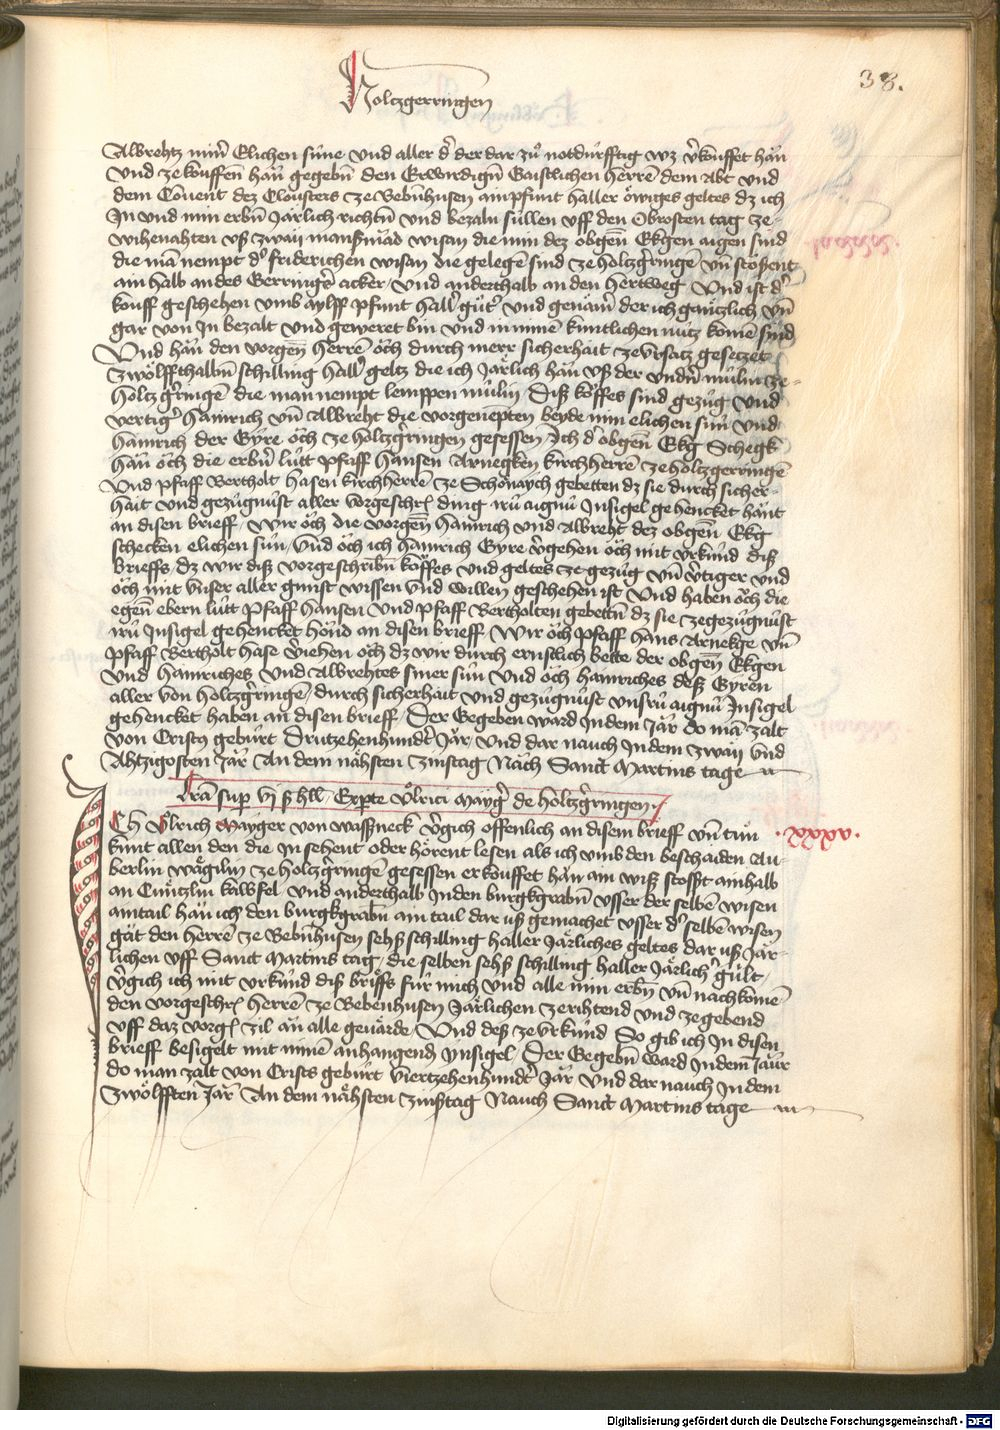 38.
Holtzgerringen
Albrehtz minr̄ Elichen süne vnd aller dˢ der dar zů notdürfftig wz v̓kouffet han
Vnd ze kouffen̄ han gegebn̄ den Erwirdign̄ Gaistlichen herrē dem Abt vnd
dem Couent dez Closters ze Bebn̄husen ain pfunt haller öwiges geltes dz ich
Jn vnd min erbn̄ Järlich richtn̄ vnd bezaln süllen vff den Obrosten tag ze
wihenahten vß zwaÿ mansmad wisan die min dez obgen̄ Ekgen aigen sind
die mā nempt dˢ friderichen wisan die gelegē sind ze holtzgr̓ingē vn̄ stossent
ain halb an des Gerringˢs acker / Vnd anderthalb an den hertweg Vnd ist dˢ
kouff geschehen vmb aylff pfunt hallˢ gůtˢ vnd genämˢ der ich gantzlich vn̄
gar von Jn bezalt vnd geweret bin vnd in minē kuntlichen nutz komē sind
Vnd han den vorgen̄ herrē öch durch merr sicherhait ze vrsatz gesetzet
zwölffthalbn̄ schilling hallˢ geltz die ich Järlich han vß der vndn̄ mülin ze
holtzgr̓ingē die man nempt lemppen mülin Diß köffes sind gezüg vnd
vertigˢ hainrich vn̄ Albreht die vorgenēpten beyde min elichen sün vnd
hainrich der Gÿre öch ze holtzgr̓ingen gesessen Ich dˢ obgen̄ Ekg Schegk
han öch die erbn̄ lütt pfaff hansen Arnegken kirchherrē ze holtzgerringē
Vnd pfaff Bertholt hasen kirchherrē ze Schönaych gebetten dz sie durch sicher
hait vnd gezügnust aller vorgeschrˢ ding irü aignü Insigel gehencket hant
an disen brieff / wir öch die vorgen̄ hainrich vnd Albreht dez obgen̄ Ekg
schecken elichen sün / Vnd öch ich hainrich Gyre v̓gehen öch mit vrkünd diß
brieffs dz wir diß vorgeschribn̄ köffes vnd geltes ze gezüg vn̄ v̓tiger vnd
öch mit vnser aller gunst wissen vnd willen geschehen ist Vnd haben öch die
egen̄ ebern lütt pfaff hansen vnd pfaff Bertholten gebettn̄ dz sie ze gezügnust
irü Insigel gehencket hond an disen brieff / Wir öch pfaff hans Arnekge vn̄
pfaff Bertholt hase viehen öch dz wir durch ernstlich bette der obgen̄ Ekgen
vnd hainriches vnd Albrehtes siner sün vnd öch hainriches deß Gyren
aller von holtzgr̓ingē / durch sicherhait vnd gezügnust vnsrü aignü Insigel
gehencket haben an disen brieff / Der Gegeben ward Jndem Jar do mā zalt
von Cristz gebürt Drützehenhundtˢ Jär / vnd dar nauch Jndem zwaÿ vnd
Ahtzigosten Jar An dem nähsten zinstag Nach Sanct Martins tage
Lrā supˢ vj ß hll̄ Exꝑte Ülrici Mayg̓ de holtzgr̓ingen
ICh Ülrich Mayger von wassneck v̓gich offenlich an disem brieff vn̄ tun
.xxxv.
kunt allen den die Jn sehent oder hörent lesen als ich vmb den beschaiden Au
berlin wägilin ze holtzgr̓ingē gesessen erkouffet han ain wiß stosst ainhalb
an Cuntzlin kalwsel vnd anderthalb Jnden burgkgrabn̄ vsser der selbē wisen
amtail han ich den burgkgrabn̄ ain tail dar vß gemachet vsser dˢ selbē wisen
gat den herrē ze Bebn̄husen sehß schilling haller Järliches geltes dar vß Jär
lichen vff Sanct Martins tag / die selben sehß schilling haller Järlichˢ gült /
v̓gich ich mit vrkünd diß briffs für mich vnd alle min erbn̄ vn̄ nachkomē
den vorgeschrˢ herrē ze Bebenhusen Järlichen ze rihtend vnd ze gebend
vff daz vorgˢ zil an alle geuärde / Vnd deß ze vrkünd So gib ich Jn disen
brieff besigelt mit minē anhangend ynsigel / Der Gegebn̄ ward Jndem Jaur
do man zalt von Crists gebürt viertzehenhundtˢ Jar vnd dar nauch Jndem
zwölfften Jar An dem nähsten zinßtag Nauch Sanct Martins tage
Digitalisierung gefördert durch die Deutsche Forschungsgemeinschaft - DFG